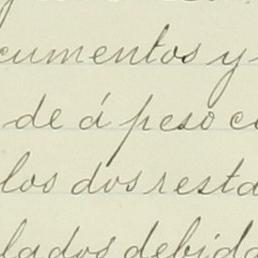 cumentos y
de á peso c
los dos resta
lados debida